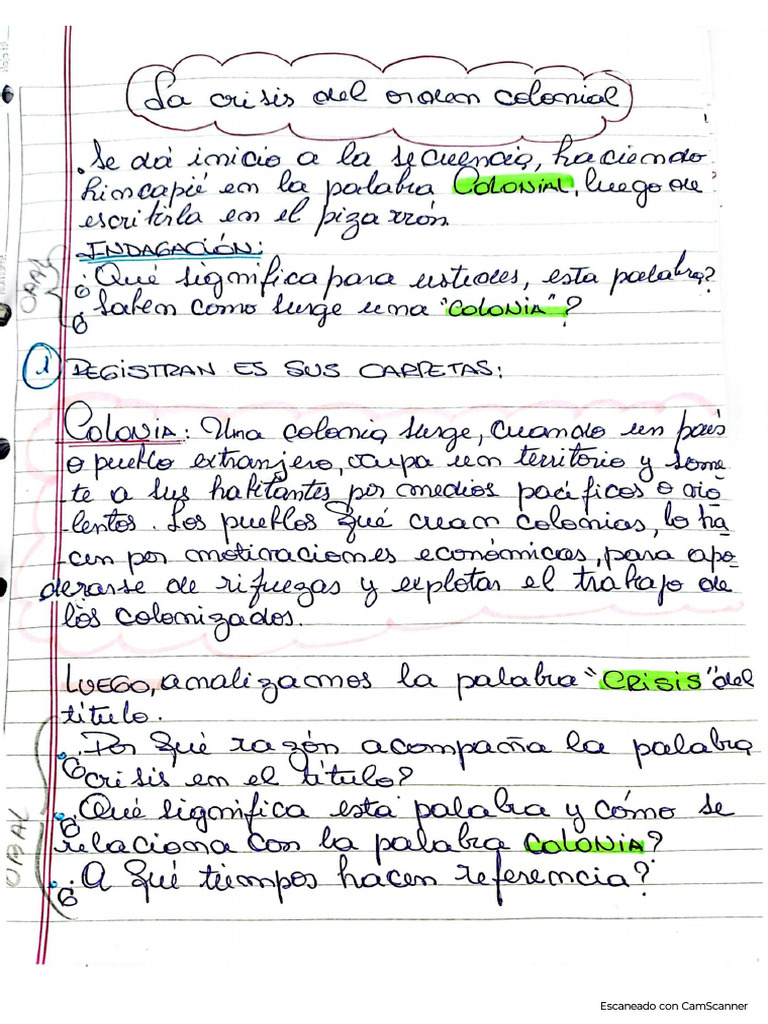 La crisis del orden colonial
. Se dá inicio a la secuencia, haciendo
hincapié en la palabra COLONIAL, luego de
escribirla en el pizarrón.
INDAGACIÓN:
ORAL
¿Qué significa para ustedes, esta palabra?
¿Saben como surge una "COLONIA"?
1 REGISTRAN ES SUS CARPETAS:
COLONIA: Una colonia surge, cuando un país
o pueblo extranjero, ocupa un territorio y some-
te a sus habitantes por medios pacíficos o vio-
lentos. Los pueblos qué crean colonias, lo ha-
cen por motivaciones económicas, para apo-
derarse de rifuezas y explotar el trabajo de
los colonizados.
LUEGO, analizamos la palabra "CRISIS" del
título.
ORAL
¿Por qué razón acompaña la palabra
crisis en el título?
¿Qué significa esta palabra y cómo se
relaciona con la palabra COLONIA?
¿A qué tiempos hacen referencia?
Escaneado con CamScanner